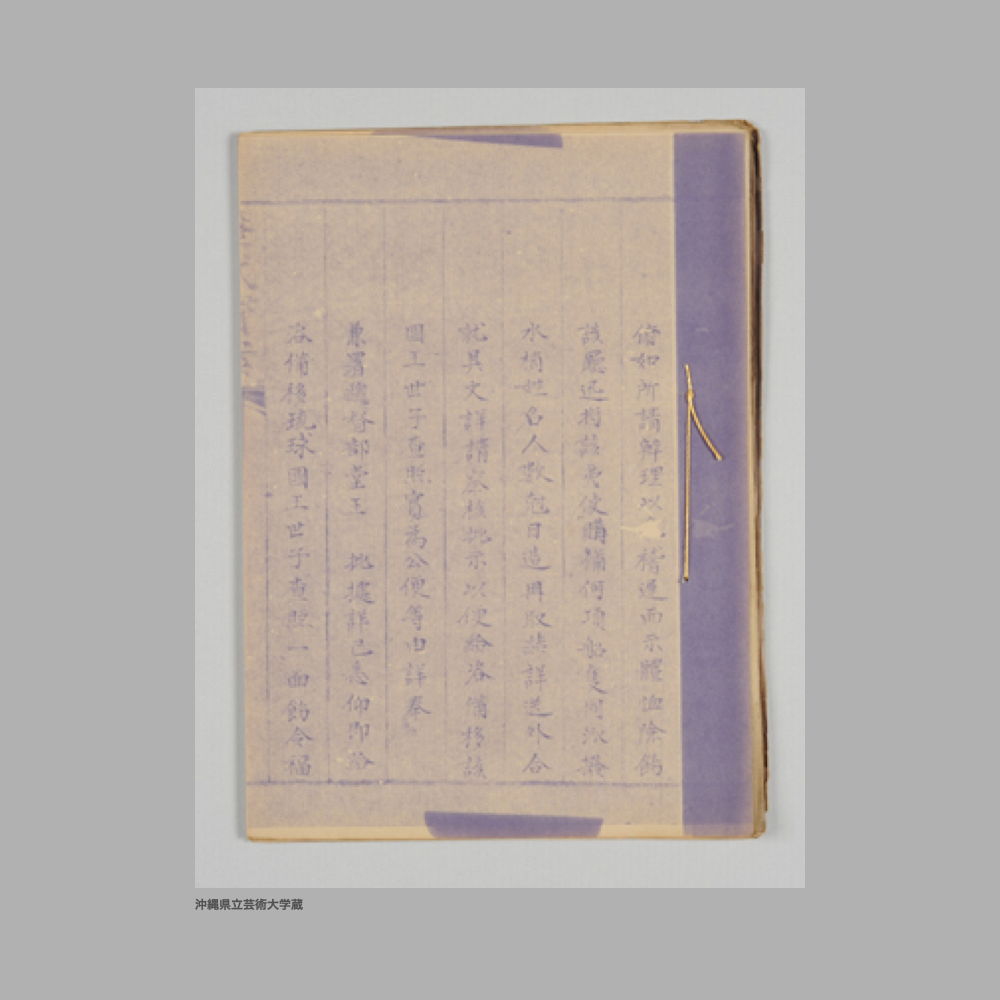 備如所請辦理以 稽遲而示體恤除飭
該廳迅將該夷使購補何項船隻何
水梢姓名人數尅日造冊取禁詳送外合
就具文詳請 核批示以便給咨備移該
國王世子查照實為公便等由詳奉
兼署總督部堂王 批據詳已悉仰即給
咨備移琉球國王世子查照一面飭令福
沖縄県立芸術大学蔵